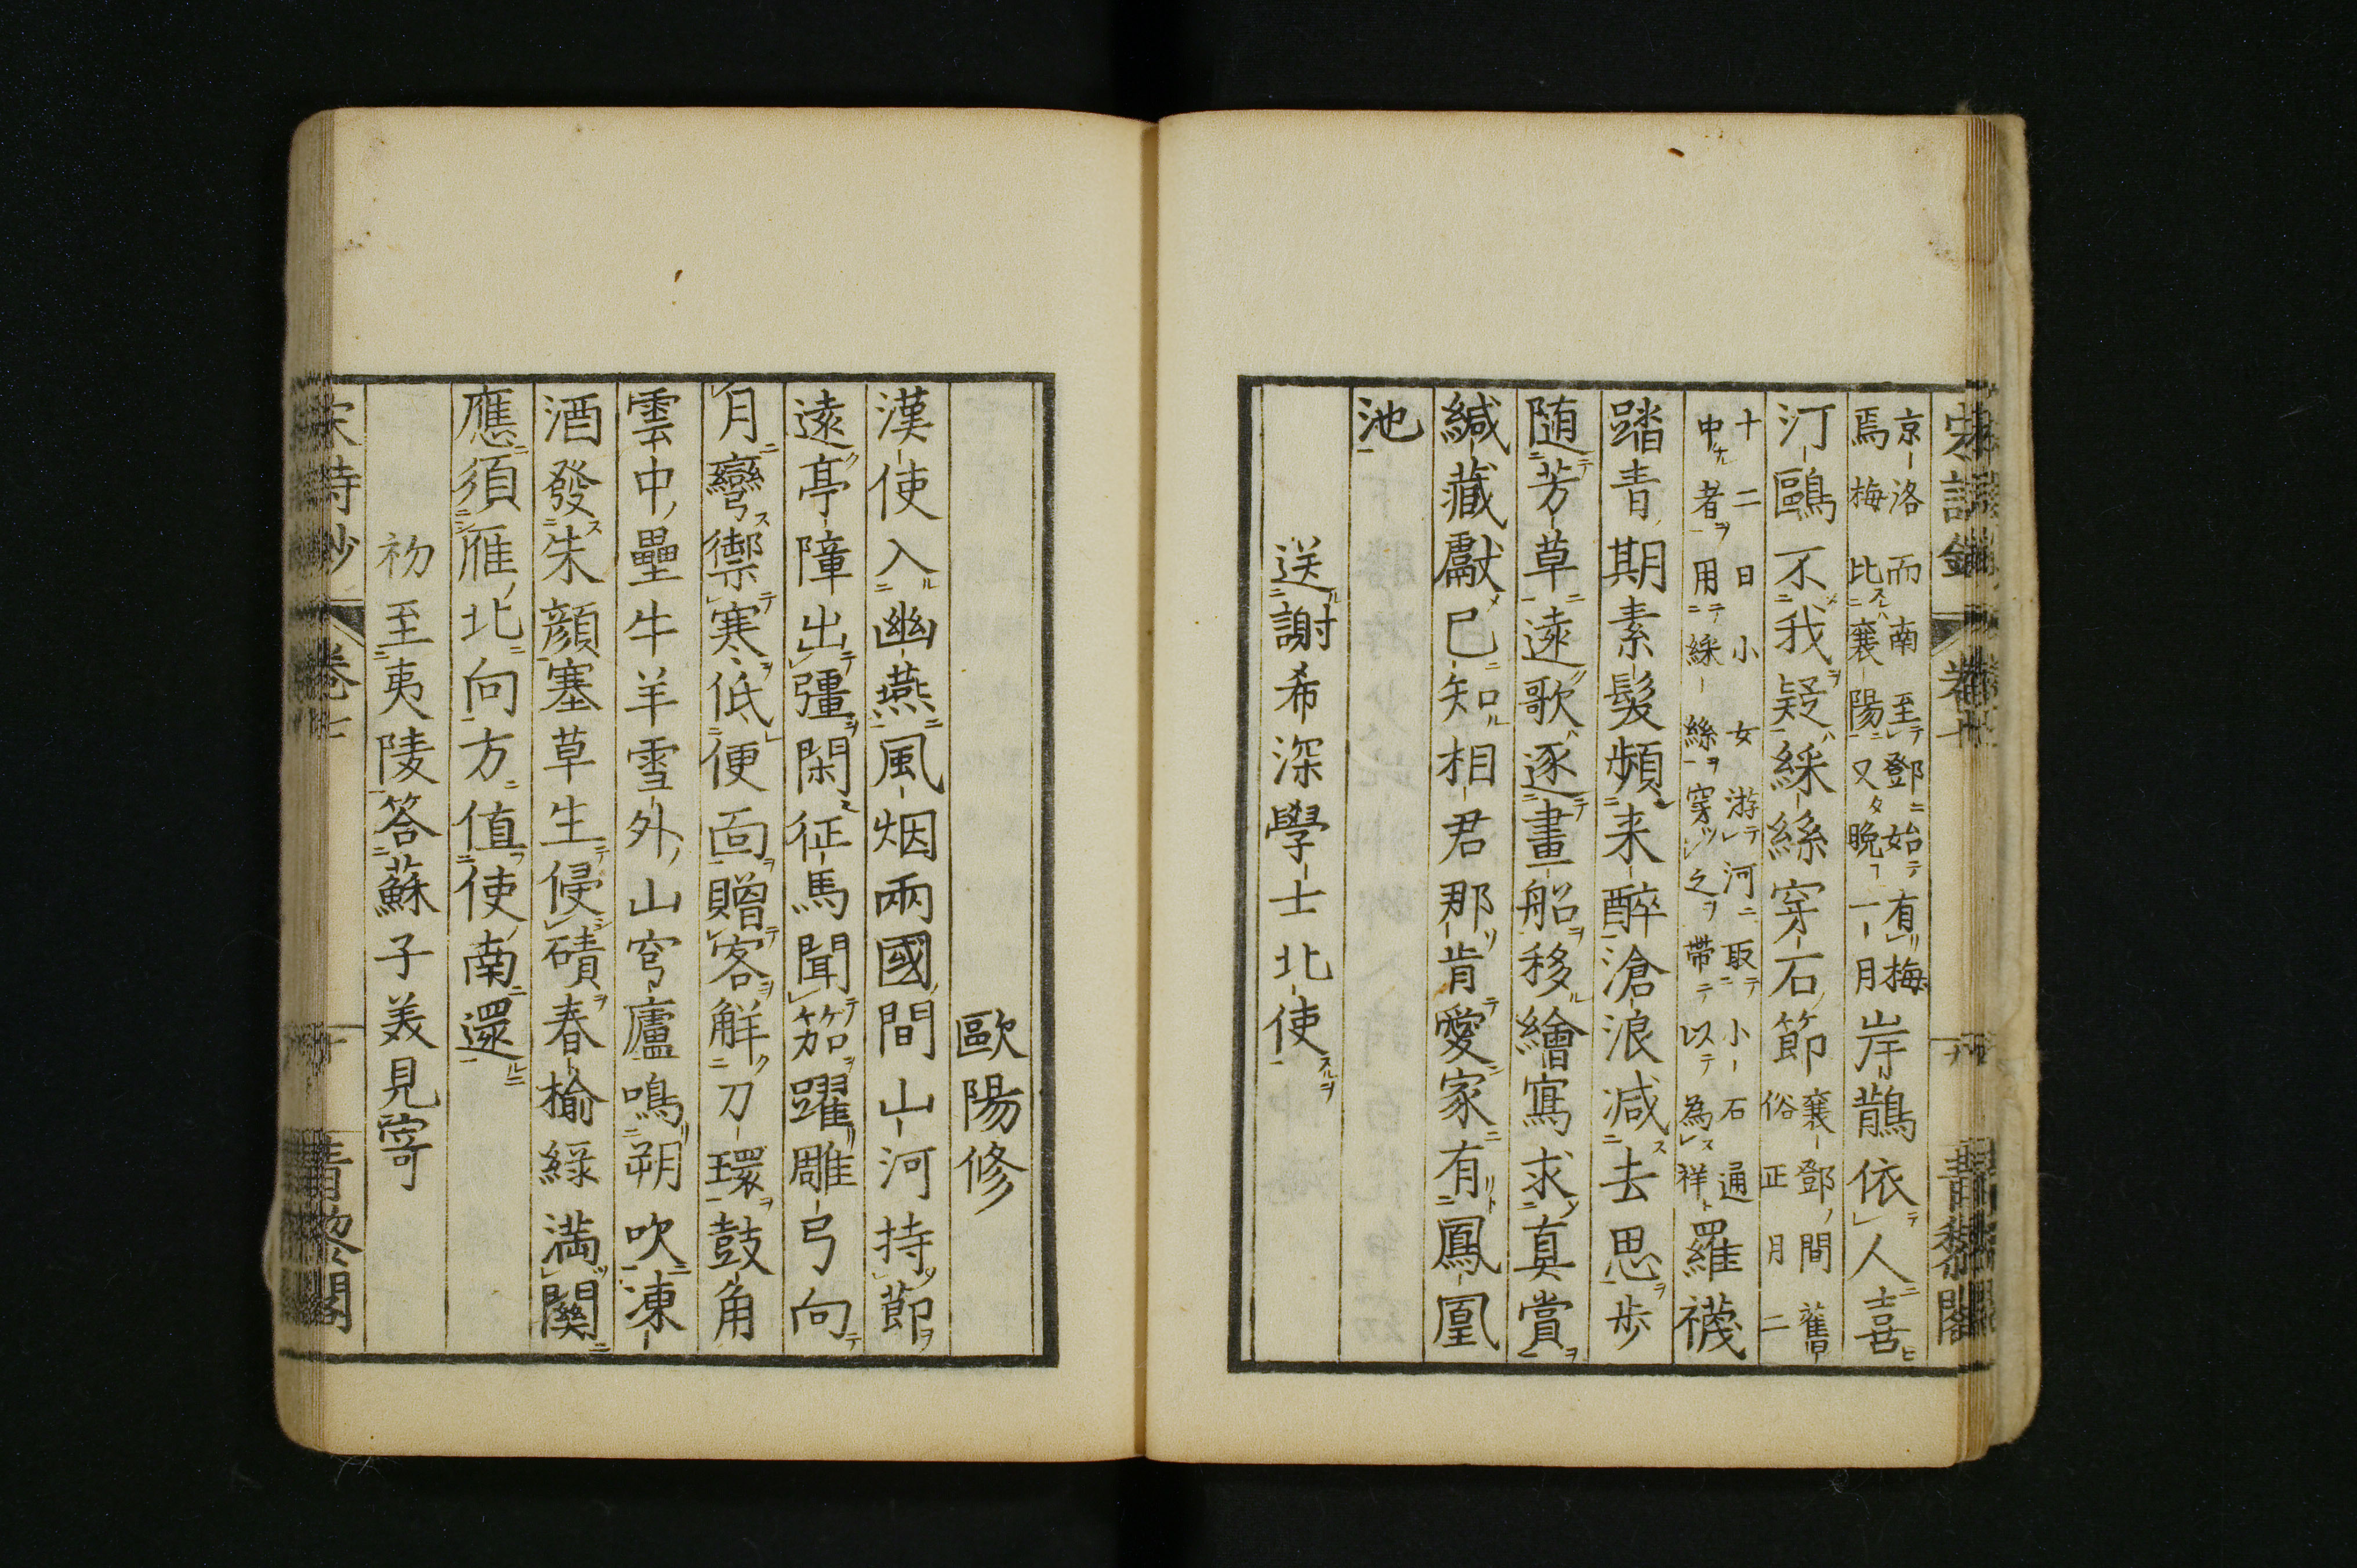 京洛而南至鄧始有梅
焉梅比襄陽又晩一月
岸鵲依人喜
汀鷗不我疑綵絲穿石節
襄鄧間舊
俗正月二
十二日小女游河取小石通
中者用綵絲穿之帯以為祥
羅襪
踏青期素髮頻来醉滄浪減去思歩
随芳草遠歌逐畫船移繪寫求真賞
緘藏獻已知相君那肯愛家有鳳凰
池
送謝希深學士北使
歐陽修
漢使入幽燕風烟兩國間山河持節
遠亭障出彊閑征馬聞笳躍雕弓向
月彎禦寒低便面贈客解刀環鼓角
雲中壘牛羊雪外山穹廬鳴朔吹凍
酒發朱顔塞草生侵磧春楡緑満關
應須雁北向方値使南還
初至夷陵答蘇子美見寄
宋詩鈔
卷七
青黎閣